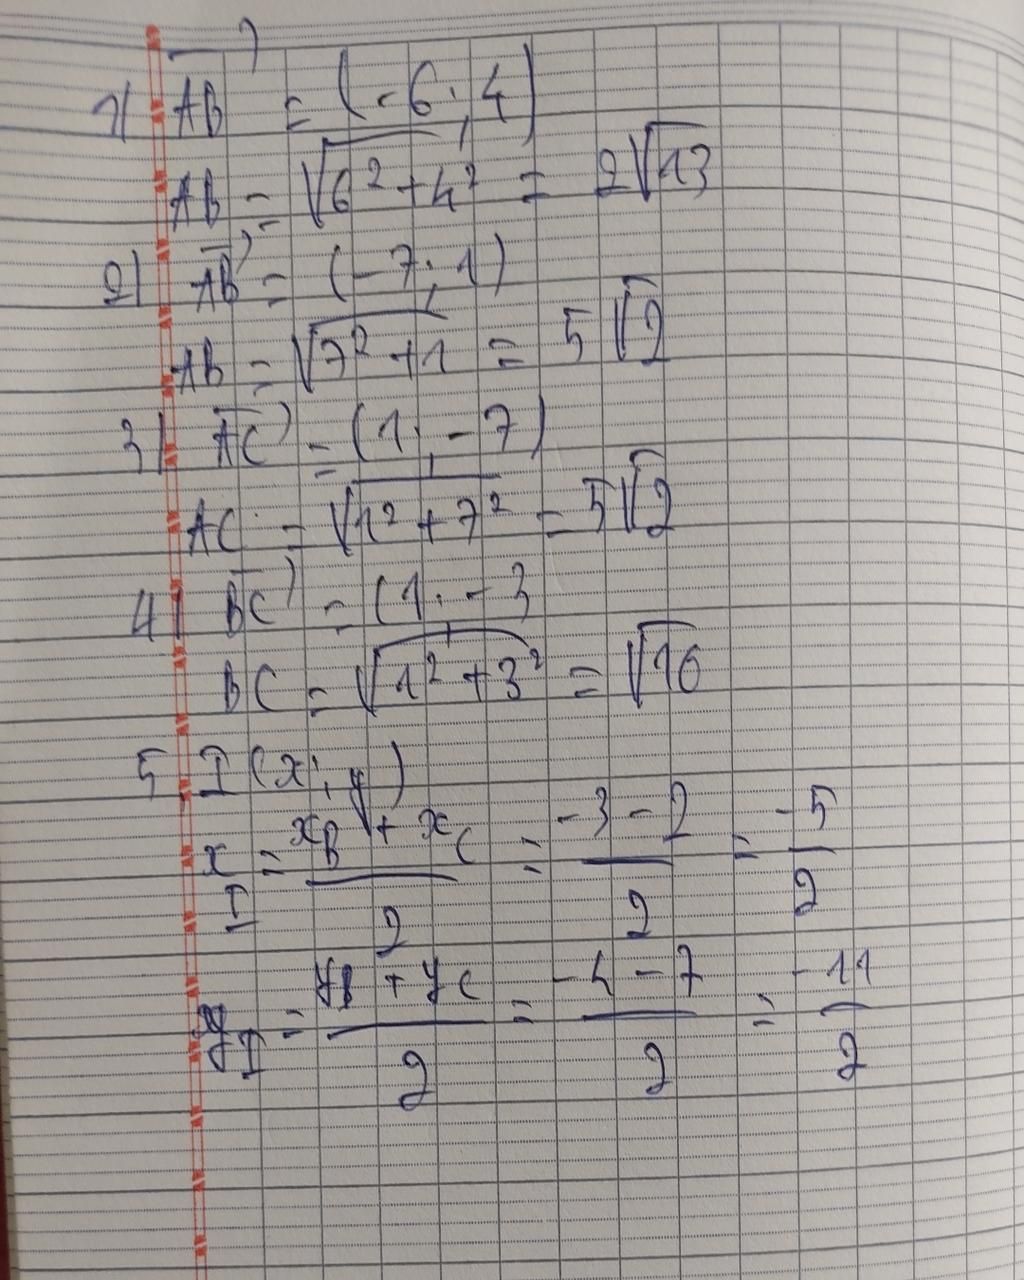 1) AB = (-6; 4)
AB = √6² + 4² = 2√13
2) AB = (-7; 1)
AB = √7² + 1 = 5√2
3) AC = (1; -7)
AC = √1² + 7² = 5√2
4) BC = (1; -3
BC = √1² + 3² = √10
5 I(x; y)
x_I = (x_B + x_C)/2 = (-3 - 2)/2 = -5/2
y_I = (y_B + y_C)/2 = (-4 - 7)/2 = -11/2